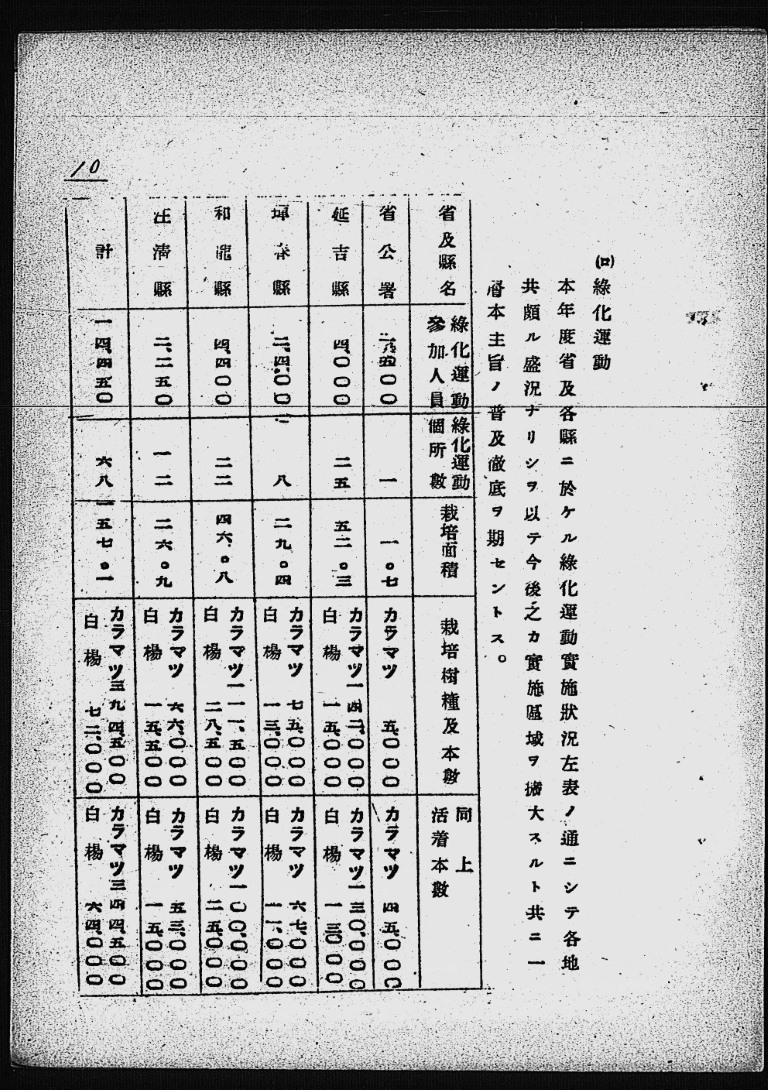 10
(ロ)綠化運動
本年度省及各縣ニ於ケル綠化運動實施狀況左表ノ通ニシテ各地
共頗ル盛況ナリシヲ以テ今後之カ實施區域ヲ擴大スルト共ニ一
層本主旨ノ普及徹底ヲ期セントス。
省及縣名 綠化運動參加人員 綠化運動個所數 栽培面積 栽培樹種及本數 同上活着本數
省公署 一 一.七 カラマツ 五、〇〇〇 カラマツ
延吉縣 四、〇〇〇 二五 五二.三 カラマツ一四二、〇〇〇 カラマツ一三〇、〇〇〇
白楊 一五、〇〇〇 白楊 一三、〇〇〇
琿春縣 二、四〇〇 八 二九.四 カラマツ 七五、〇〇〇 カラマツ 六七、〇〇〇
白楊 一三、〇〇〇 白楊 一一、〇〇〇
和龍縣 四、四〇〇 二二 四六.八 カラマツ一一一、五〇〇 カラマツ一〇〇、〇〇〇
白楊 二八、五〇〇 白楊 二五、〇〇〇
汪清縣 二、二五〇 一二 二六.九 カラマツ 六六、〇〇〇 カラマツ 五三、〇〇〇
白楊 一五、五〇〇 白楊 一五、〇〇〇
計 一四、四五〇 六八 一五七.一 カラマツ三九四、五〇〇 カラマツ三四四、五〇〇
白楊 七二、〇〇〇 白楊 六四、〇〇〇